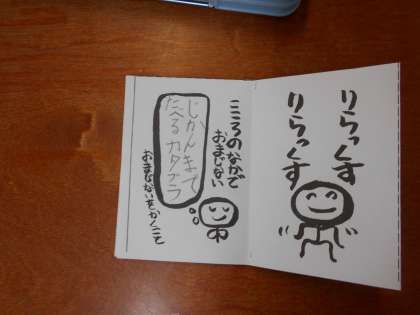 りらっくす
りらっくす
こころのなかで
おまじない
じかんまで
たべる カタブラ
おまじないをかくこと